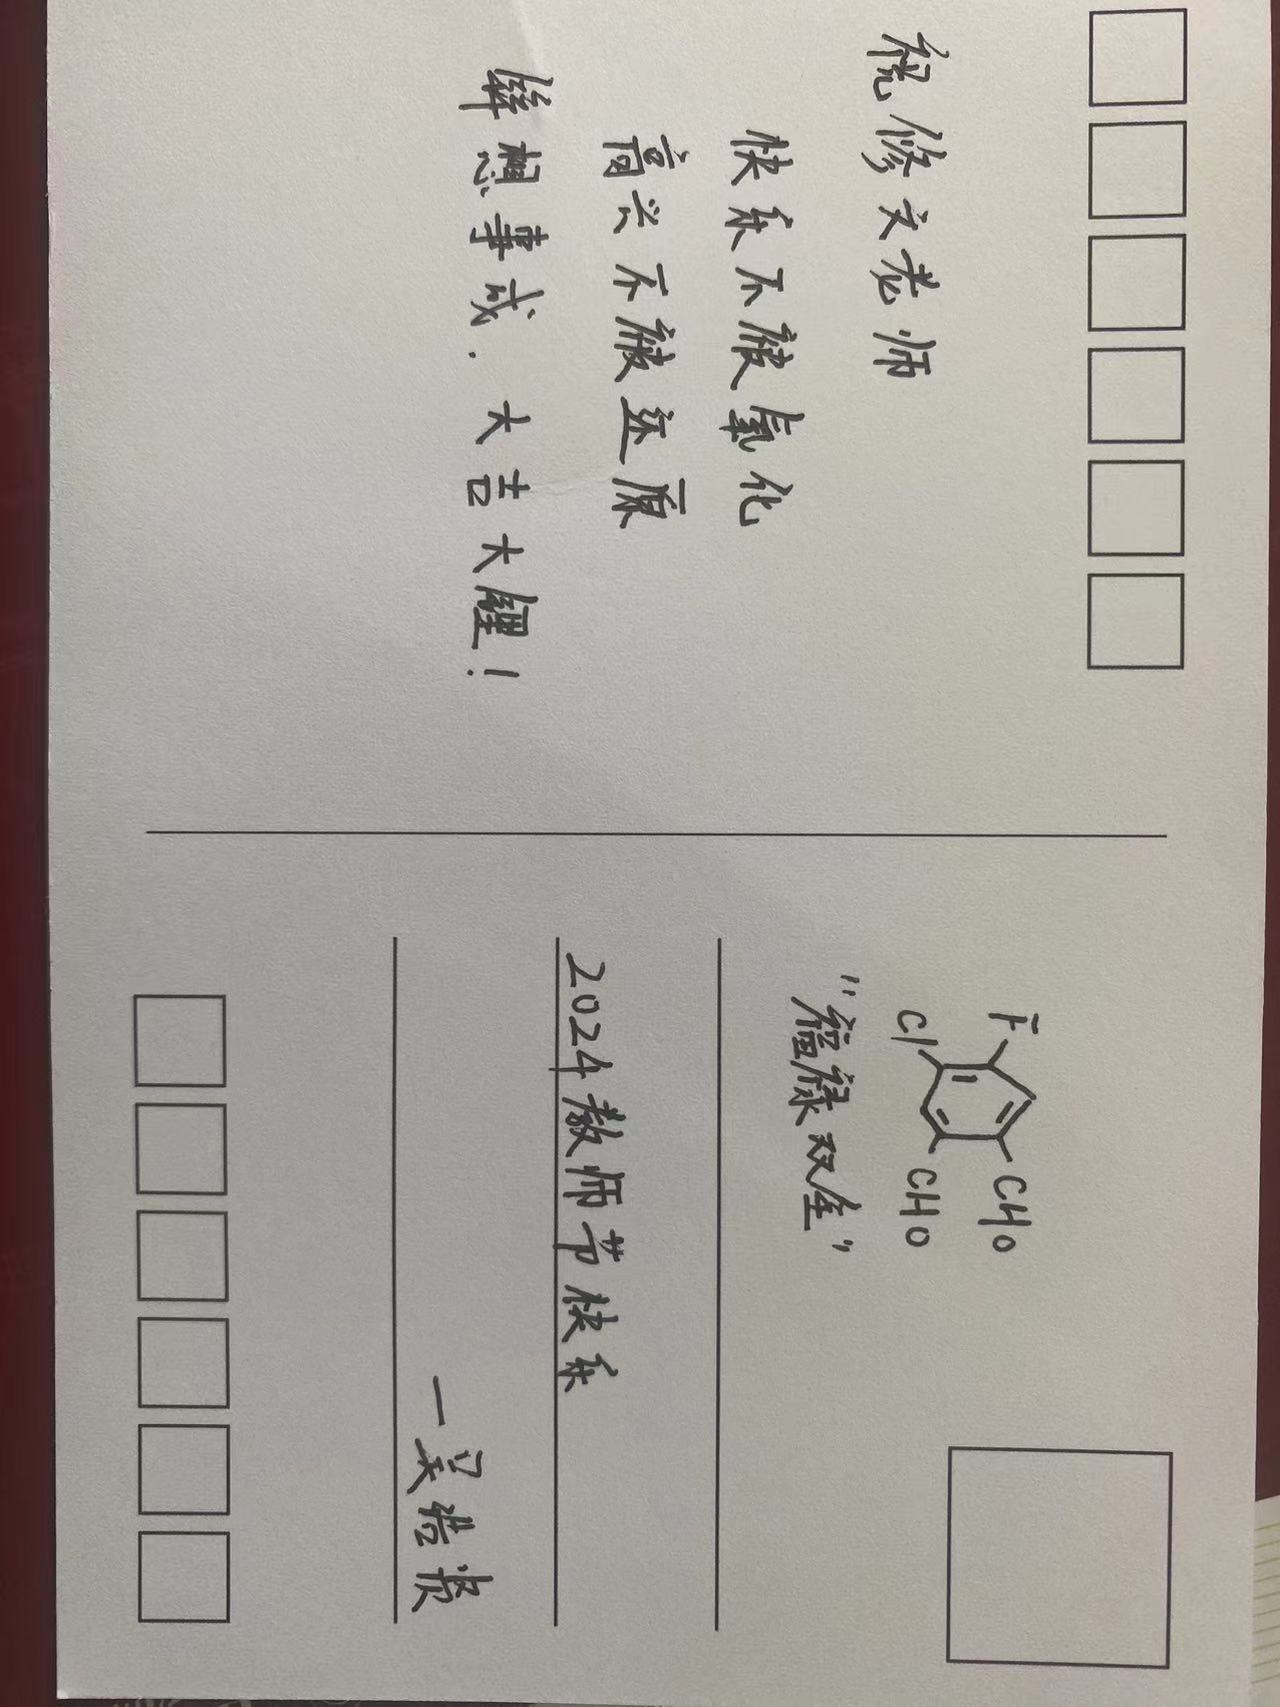 祝修文老师
快乐不被氧化
高兴不被还原
锌想事成.大吉大锂!
F
CHO
Cl
CHO
“福禄双全”
2024教师节快乐
一吴浩